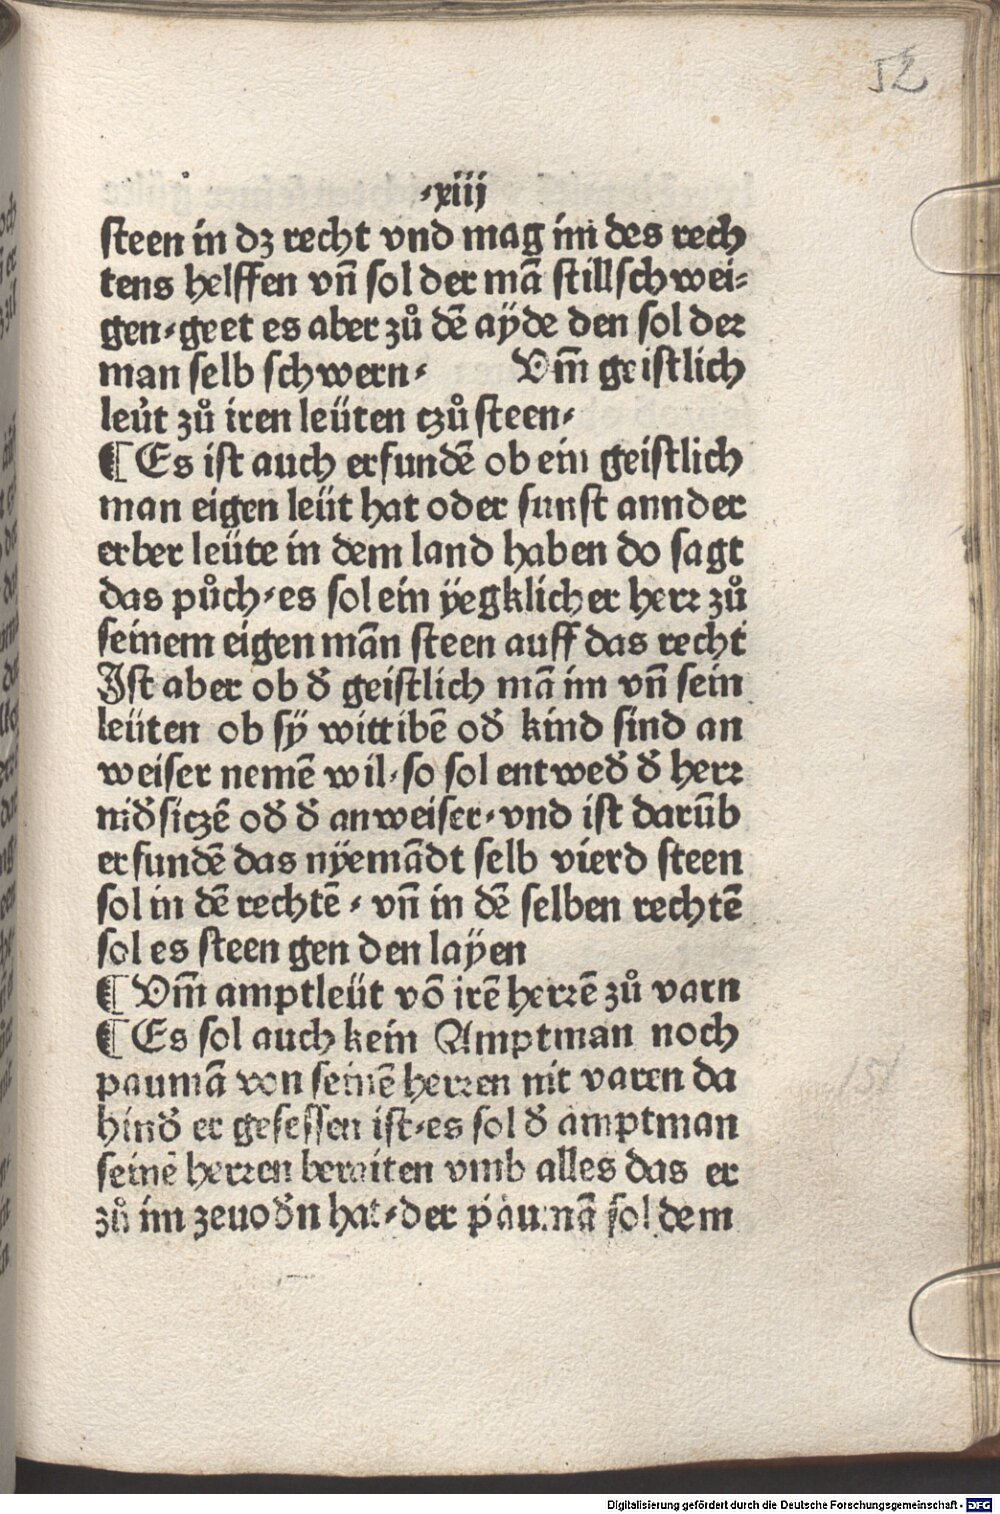 52
·xiii
steen in dz recht vnd mag im des rech
tens helffen vñ sol der mā stillschwei⸗
gen·geet es aber zů dē aÿde den sol der
man selb schwern· Vm̄ geistlich
leüt zů iren leüten czů steen·
¶ Es ist auch erfundē ob ein geistlich
man eigen leüt hat oder sunst annder
erber leüte in dem land haben do sagt
das půch·es sol ein ÿegklicher herr zů
seinem eigen mān steen auff das recht
Ist aber ob đ geistlich mā im vñ sein
leüten ob sÿ wittibē ođ kind sind an
weiser nemē wil·so sol entweđ đ herr
niđsitzē ođ đ anweiser·vnd ist darūb
erfundē das nÿemādt selb vierd steen
sol in dē rechtē · vñ in dē selben rechtē
sol es steen gen den laÿen
¶ Vm̄ amptleüt vō irē herrē zů varn
¶ Es sol auch kein Amptman noch
paumā von seinē herren nit varen da
hinđ er gesessen ist·es sol đ amptman
seinē herren beraiten vmb alles das er
zů im zeuođn hat·der paumā sol dem
151
Digitalisierung gefördert durch die Deutsche Forschungsgemeinschaft - DFG